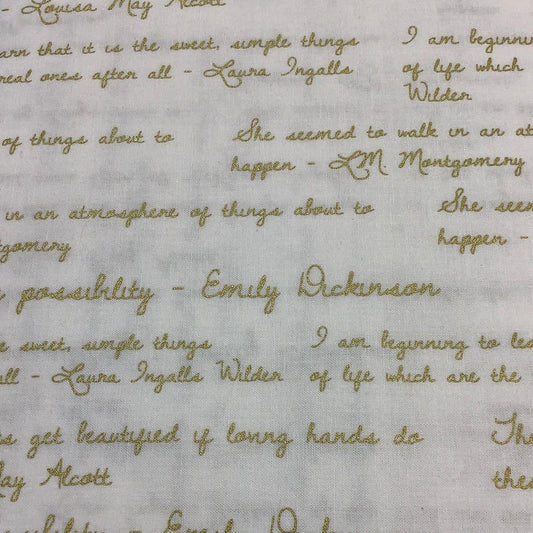 - Louisa May Alcott
arn that it is the sweet, simple things I am beginnin
real ones after all - Laura Ingalls of life which
Wilder
of things about to She seemed to walk in an at
happen - L.M. Montgomery
in an atmosphere of things about to She seem
tgomery happen -
possibility - Emily Dickinson
e sweet, simple things I am beginning to lea
all - Laura Ingalls Wilder of life which are the
s get beautified if loving hands do The
May Alcott thes
sibility - Emily Dickin